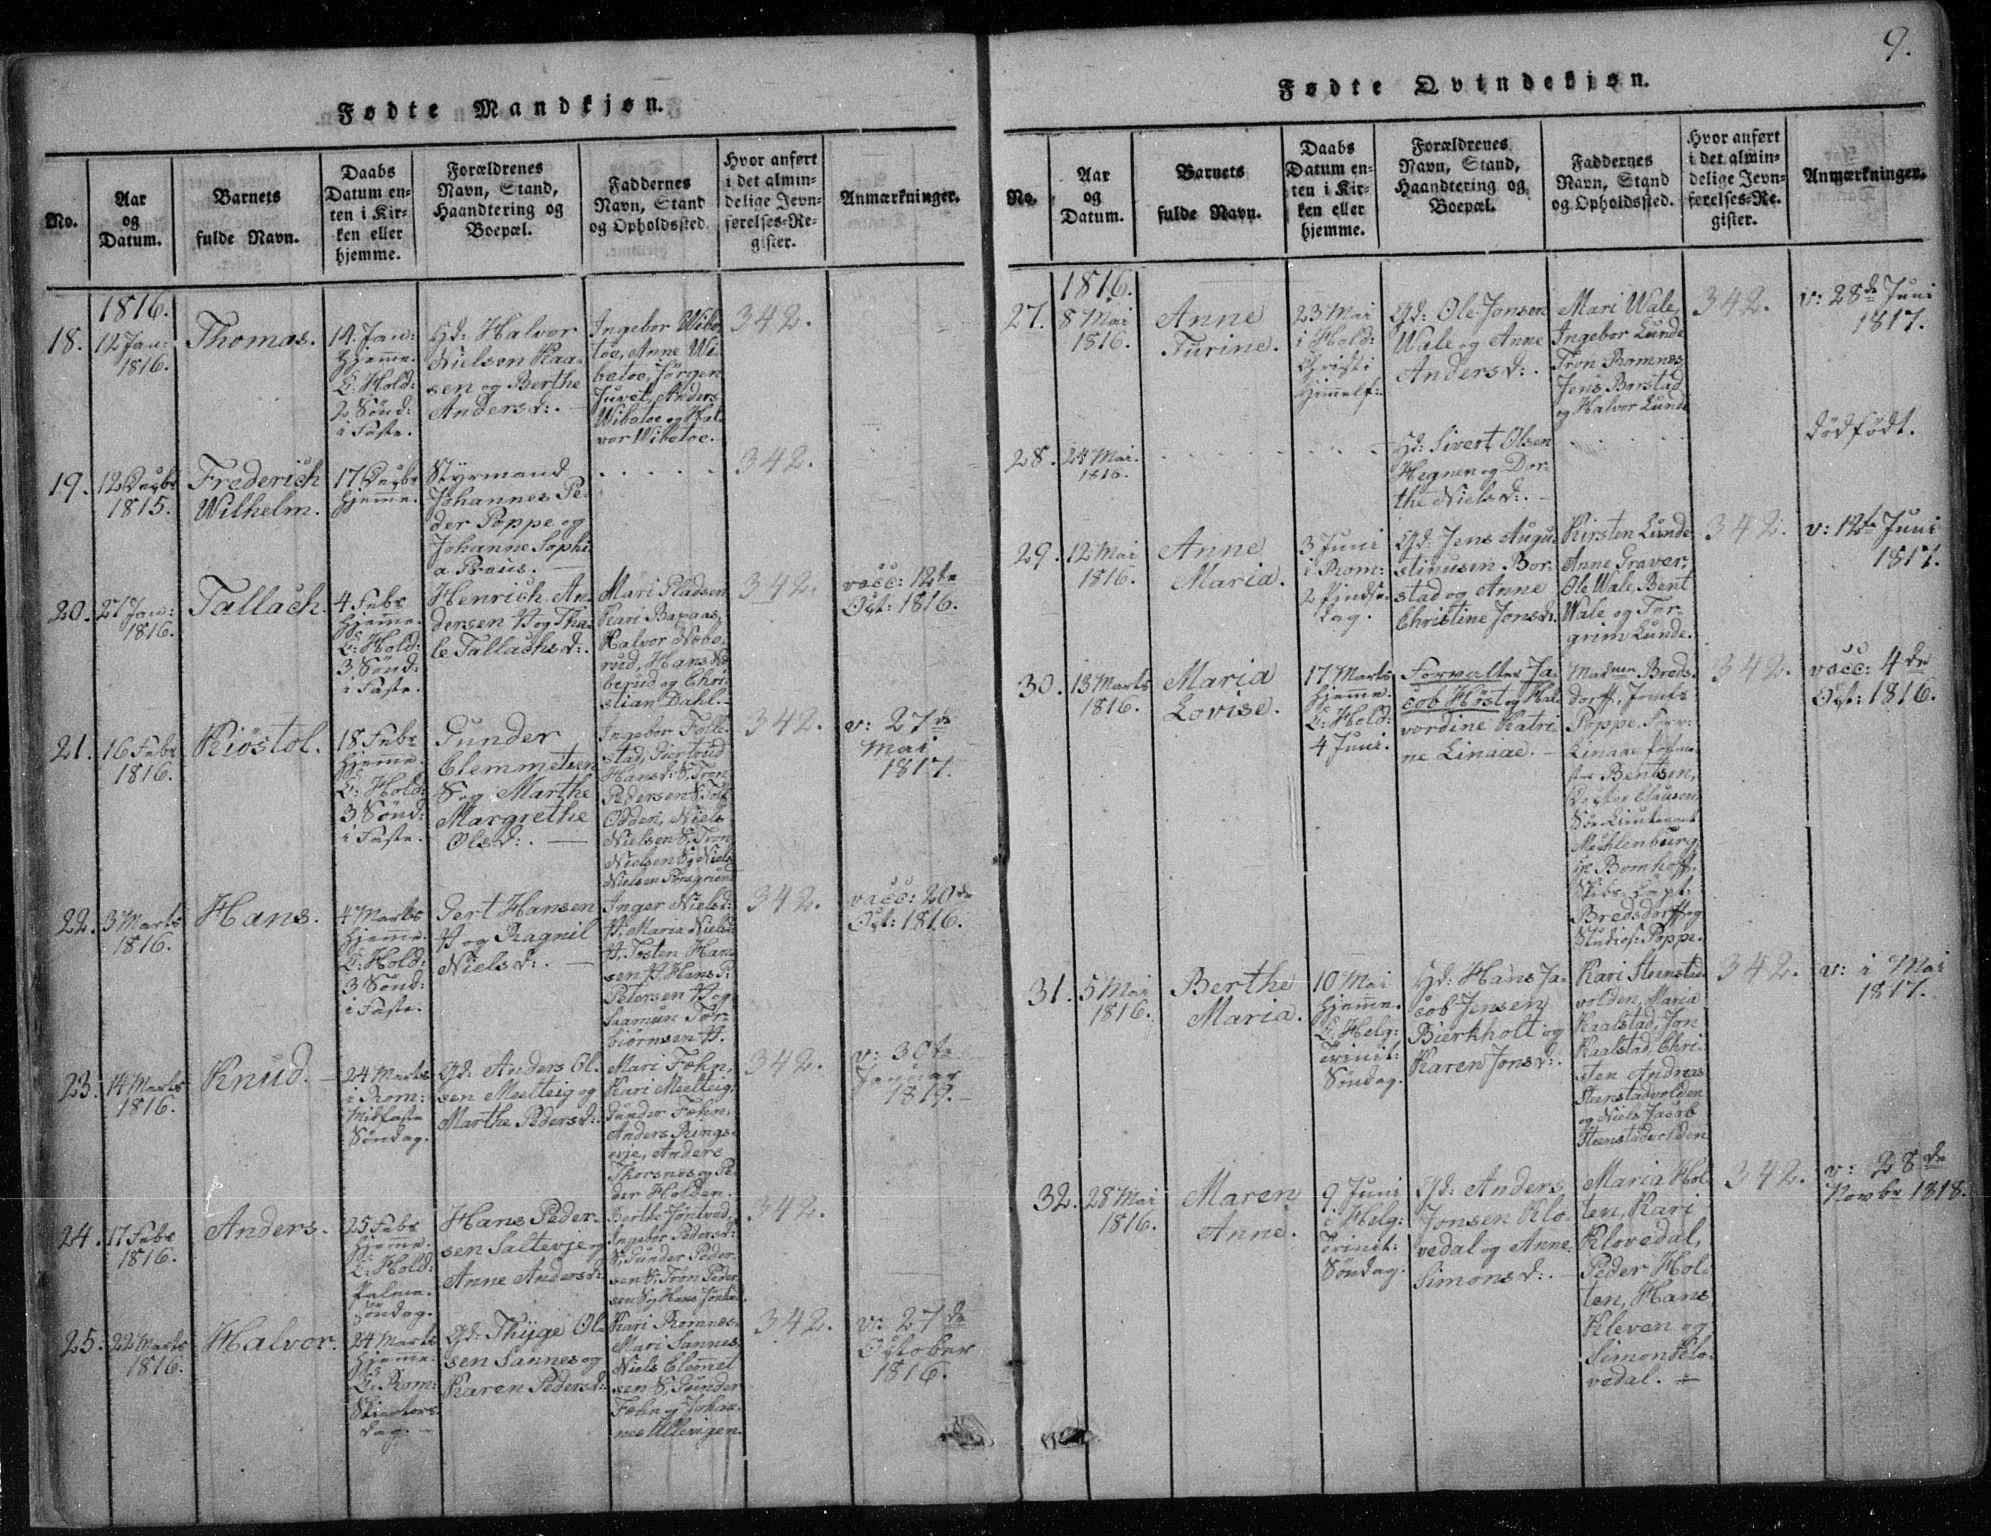 Fødte Mandkjøn.
No.
Aar
og
Datum.
Barnets
fulde Navn.
Daabs
Datum en-
ten i Kir-
ken eller
hjemme.
Forældrenes
Navn, Stand,
Haandtering og
Boepæl.
Faddernes
Navn, Stand
og Opholdssted.
Hvor anført
i det almin-
delige Jevn-
førelses-Re-
gister.
Anmærkninger.
1816.
18.
12 Jan:
1816.
Thomas.
14 Jan:
hjemme.
C: Hold:
2 Sönd:
i Faste.
Hd: Halvor
Nielsen Kaa-
sen og Berthe
Andersd:. —
Ingebor Wibe-
toe, Anne Wi-
betoe, Jörgen
Juvet, Anders
Wibetoe og Hal-
vor Wibetoe.
342.
19.
12 Decbr
1815.
Frederich
Wilhelm.
17 Decbr
hjemme.
Styrmand
Johannes Pe-
der Poppe og
Johanne Sophi-
a Praus. —
342.
20.
27 Jan:
1816.
Tallach.
4 Febr
hjemme.
C: Hold:
3 Sönd:
i Faste.
Henrich An-
dersen H og Tha-
le Tallachsd:.
Mari Pladsen
Kari Bapaas,
Halvor Næbe-
rud, Hans Næ-
berud og Chri-
stian Dahl. —
342.
vacc: 12te
Oct: 1816.
21.
16 Febr
1816.
Kiöstol.
18 Febr
hjemme.
C: Hold:
3 Sönd:
i Faste.
Gunder
Clemmetsen
S og Marthe
Margrethe
Olsd:. —
Ingebor Tolle-
stad, Giertrud
Hansd: S, Tron
Pedersen S, Tolf
Odden, Niels
Nielsen S, Tron
Nielsen S, Niels
Nielsen Porsgrund
342.
v: 27de
Mai
1817.
22.
3 Marts
1816.
Hans.
4 Marts
hjemme.
C: Hold:
3 Sönd:
i Faste.
Gert Hansen
H og Ragnil
Nielsd:. —
Inger Nielsd:
H, Maria Nielsd:
H, Tosten Han-
sen H, Hans P
Petersen H og
Saamun Tor-
biörnsen H.
342.
vacc: 20de
Oct: 1816.
23.
14 Marts
1816.
Knud. —
24 Marts
i Rom:
Midfaste
Söndag.
Gd: Anders Ol-
sen Meelteig og
Marthe Pedersd:.
Mari Fæhn,
Kari Meelteig,
Gunder Fæhn,
Anders Rings-
evje, Anders
Thorsnes og Pe-
der Holden.
342.
v: 30te
Januar
1819. —
24.
17 Febr
1816.
Anders.
25 Febr
hjemme.
C: Hold:
Palme
Söndag.
Hans Peder-
sen Saltevje og
Anne Andersd:
Berthe Jöntved,
Ingebor Pedersd:
S, Gunder Peder-
sen S, Tron Peder-
sen S og Hans Jöntved.
342.
25.
22 Marts
1816.
Halvor.
24 Marts
hjemme.
C: Rom:
Skiertors-
dag. —
Gd: Thyge Ol-
sen Sannes og
Karen Pedersd:
Kari Romnes,
Mari Sannes,
Niels Clemet-
sen S, Gunder
Fæhn og Johan-
nes Ullevigen.
342.
v: 27de
October
1816.
9.
Fødte Qvindekjøn.
No.
Aar
og
Datum.
Barnets
fulde Navn.
Daabs
Datum en-
ten i Kir-
ken eller
hjemme.
Forældrenes
Navn, Stand,
Haandtering og
Boepæl.
Faddernes
Navn, Stand
og Opholdssted.
Hvor anført
i det almin-
delige Jevn-
førelses-Re-
gister.
Anmærkninger.
1816.
27.
8 Mai
1816.
Anne
Turine.
23 Mai
i Hold:
Christi
Himmelf:
Gd: Ole Jonsen
Wale og Anne
Andersd:.
Mari Wale,
Ingebor Lunde
Tron Romnes
Jens Borstad
og Halvor Lunde
342.
v: 28de Juni
1817.
28.
24 Mai
1816.
Hd: Sivert Olsen
Hegnen og Dor-
the Nielsd:. —
dödfödt.
29.
12 Mai
1816.
Anne
Maria.
3 Juni
i Rom:
2 Pindse-
dag.
Gd: Jens Augu-
stinusen Bor-
stad og Anne
Christine Jonsd:
Kirsten Lunde
Anne Graver,
Ole Wale, Bent
Wale og Tor-
grim Lunde.
342.
v: 12te Juni
1817.
30.
13 Marts
1816.
Maria
Lovise.
17 Marts
hjemme.
C: Hold:
4 Juni.
Forvalter Ja-
cob Höst og Hal-
vordine Katri-
ne Linaae. —
Madmen Breds-
dorff, Jomfr
Poppe, Forv-
Linaae,
Bentsen,
Doctor Clausen,
Söe Lieutenant
Mechlenburg,
Hr Bomhoff,
Skibs-Capt:
Bredsdorff og
Studios: Poppe.
342.
vacc: 4de
Oct: 1816.
31.
5 Mai
1816.
Berthe
Maria.
10 Mai
hjemme.
C: Helg:
Trinit:
Söndag.
Hd: Hans Ja-
cob Jensen
Bierkholt og
Karen Jonsd:.
Kari Steenstad-
volden, Maria
Kaalstad, Jon
Kaalstad, Chri-
sten Andreas
Steenstadvolden
og Niels Jacob
Steenstadvolden
342.
v: 1 Mai
1817.
32.
28 Mai
1816.
Maren
Anne.
9 Juni
i Helg:
Trinit:
Söndag.
Gd: Anders
Jonsen Klo-
vedal og Anne
Simonsd:. —
Maria Hol-
ten, Kari
Klovedal,
Peder Hol-
ten, Hans
Kleven og
Simon Klo-
vedal. —
342.
v: 28de
Novbr 1818.